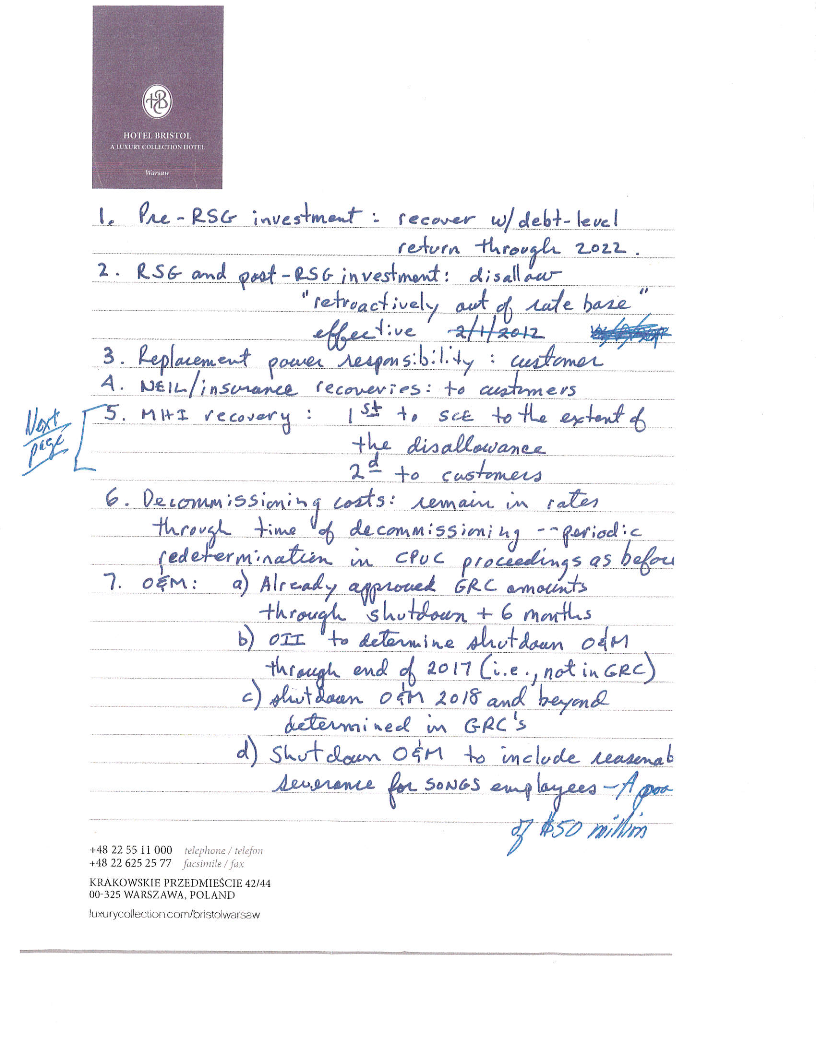 HB
HOTEL BRISTOL
A LUXURY COLLECTION HOTEL
Warsaw
1. Pre-RSG investment: recover w/debt-level
return through 2022.
2. RSG and post-RSG investment: disallow
"retroactively out of rate base"
effective 2/1/2012
3. Replacement power responsibility: customer
4. NEIL/insurance recoveries: to customers
Next page
5. MHI recovery: 1st to SCE to the extent of
the disallowance
2d to customers
6. Decommissioning costs: remain in rates
through time of decommissioning -- periodic
redetermination in CPUC proceedings as before
7. O&M: a) Already approved GRC amounts
through shutdown + 6 months
b) OII to determine shutdown O&M
through end of 2017 (i.e., not in GRC)
c) shutdown O&M 2018 and beyond
determined in GRC's
d) Shutdown O&M to include reasonab
severance for SONGS employees - A poo
of $50 million
+48 22 55 11 000 telephone / telefon
+48 22 625 25 77 facsimile / fax
KRAKOWSKIE PRZEDMIEŚCIE 42/44
00-325 WARSZAWA, POLAND
luxurycollection.com/bristolwarsaw